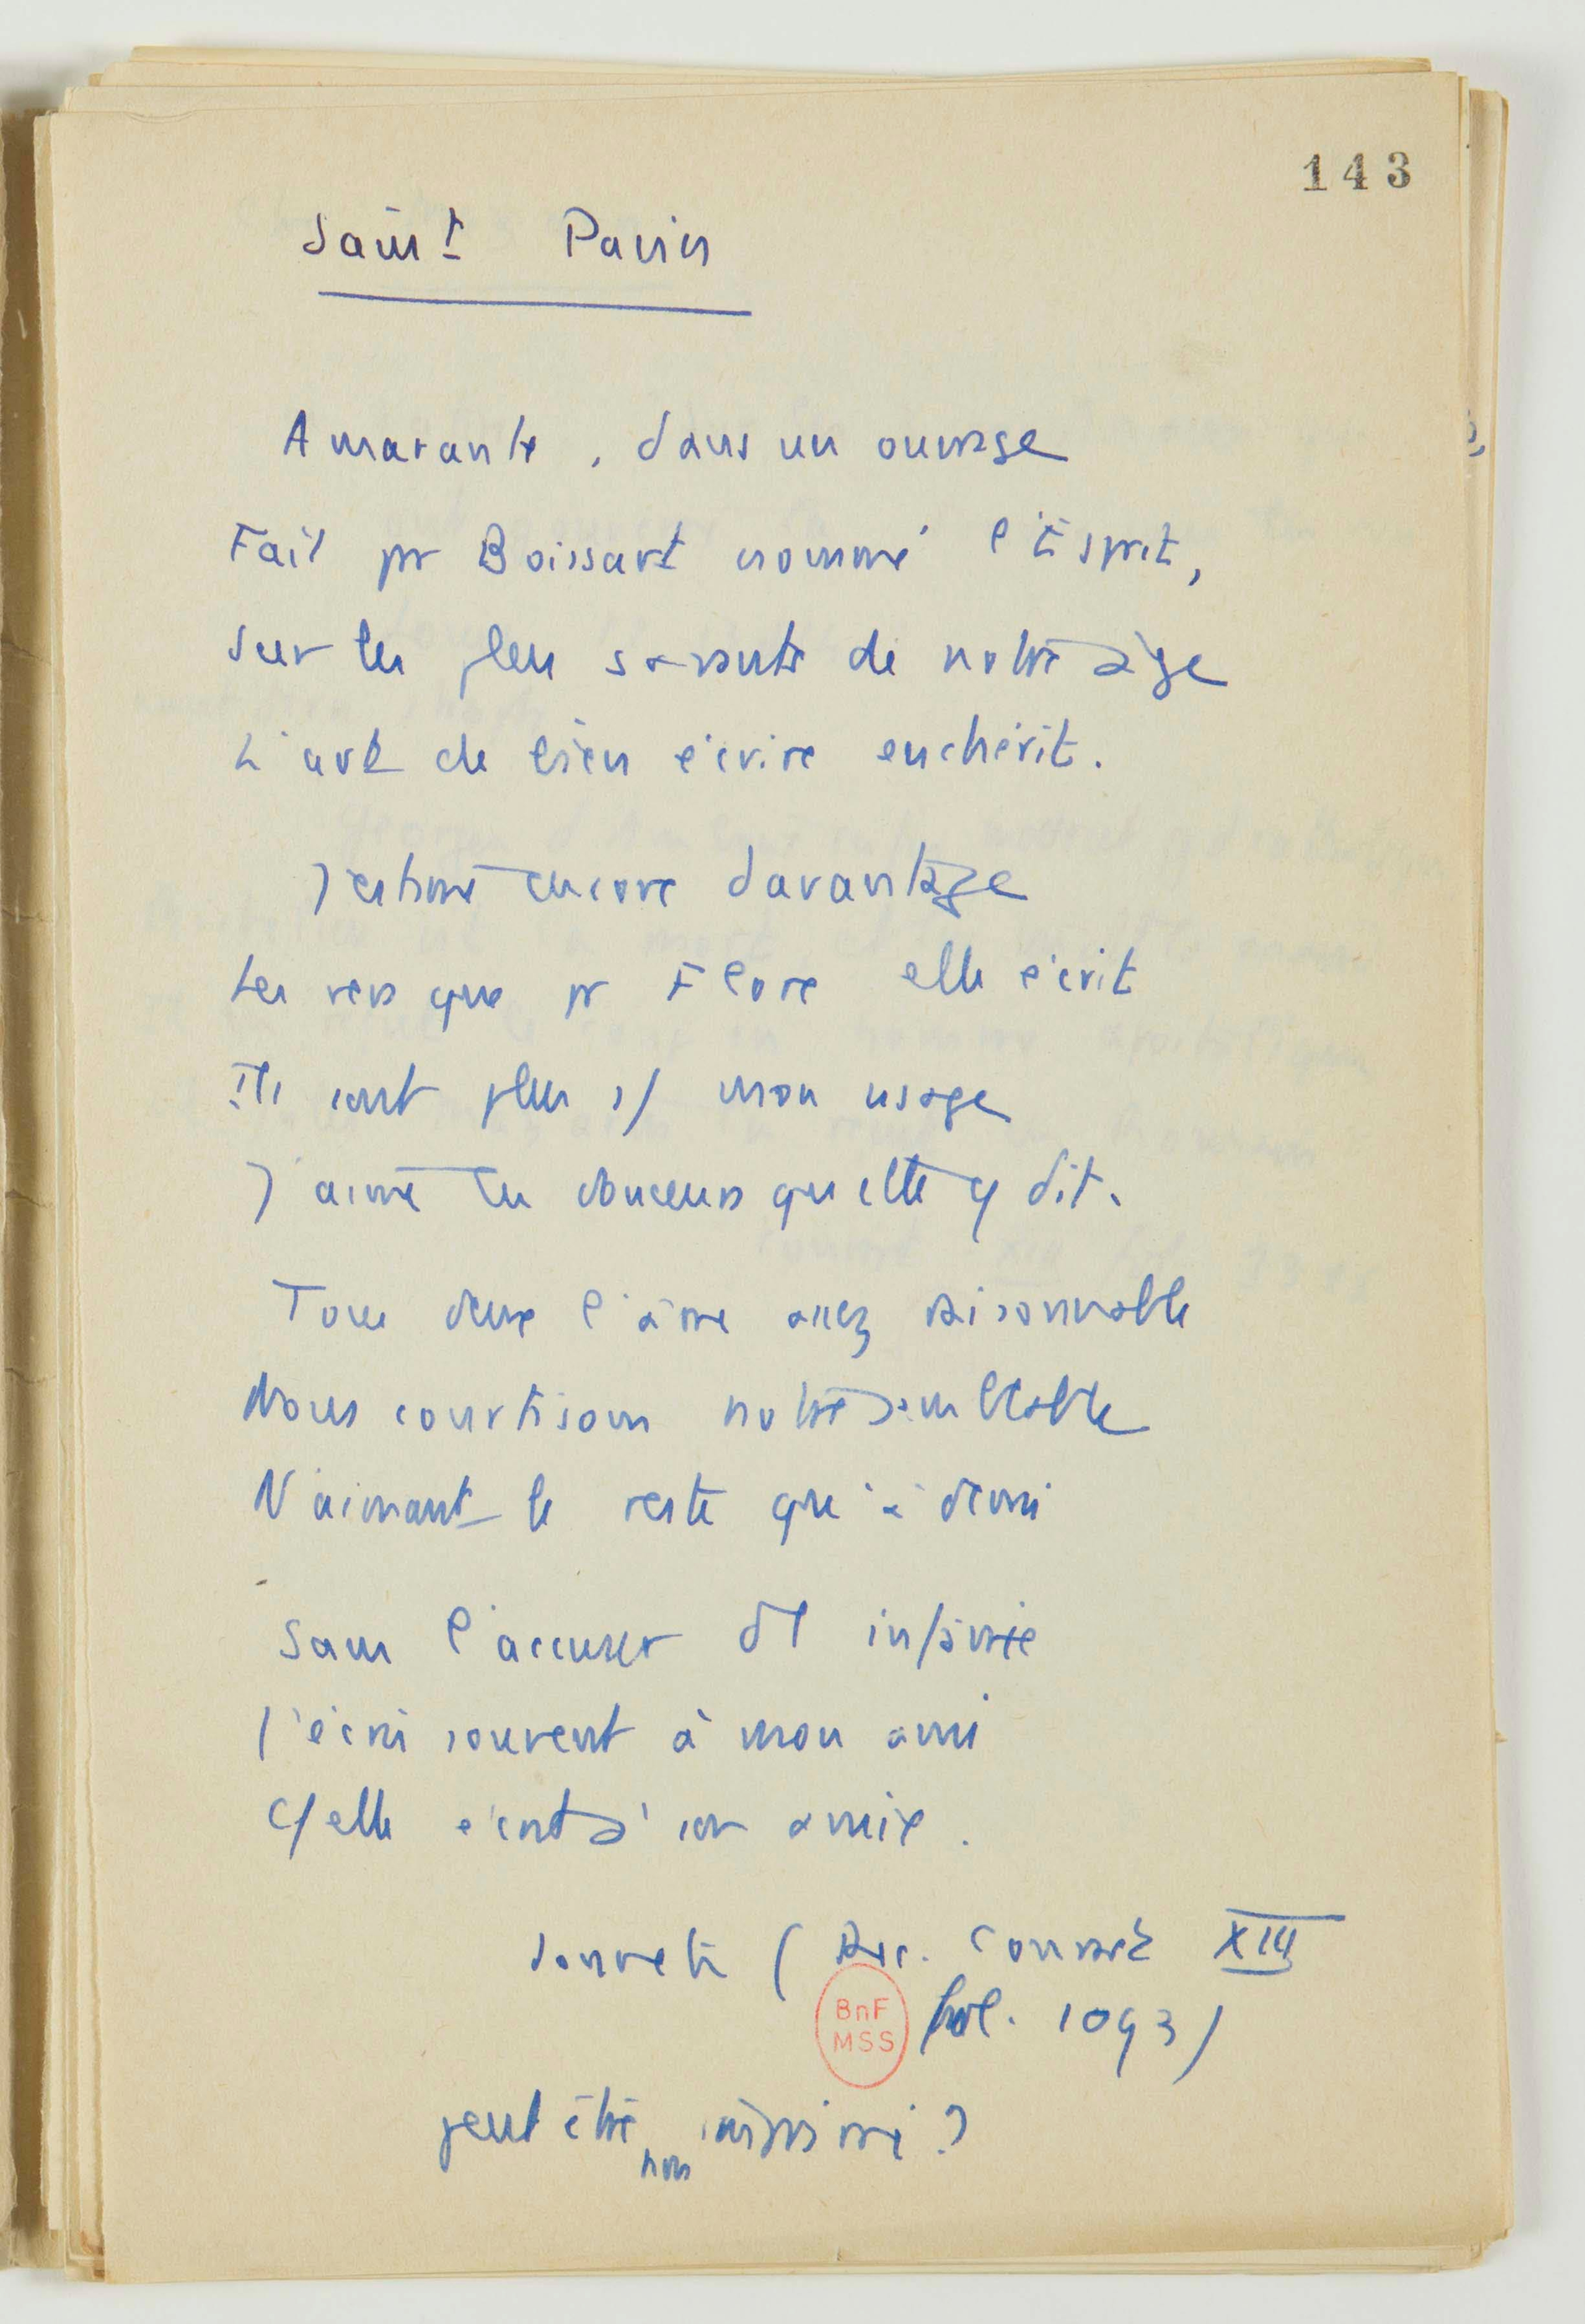 143
Saint Pavin
Amarante, dans un ouvrage
Fait pr Boissart nommé l'Esprit,
Sur les plus savants de notre âge
L'art de bien écrire enchérit.
J'estime encore davantage
Les vers que pr Flore elle écrit
Ils sont plus à mon usage
J'aime les douceurs qu'elle y dit.
Tous deux l'âme assez raisonnable
Nous courtisons notre semblable
N'aimant le reste qu'à demi
Sans l'accuser d'infamie
J'écris souvent à mon ami
Qd elle écrit à son amie.
Sonnet (Rec. Conrart XIII
fol. 1093)
BnF
MSS
peut être non imprimé ?